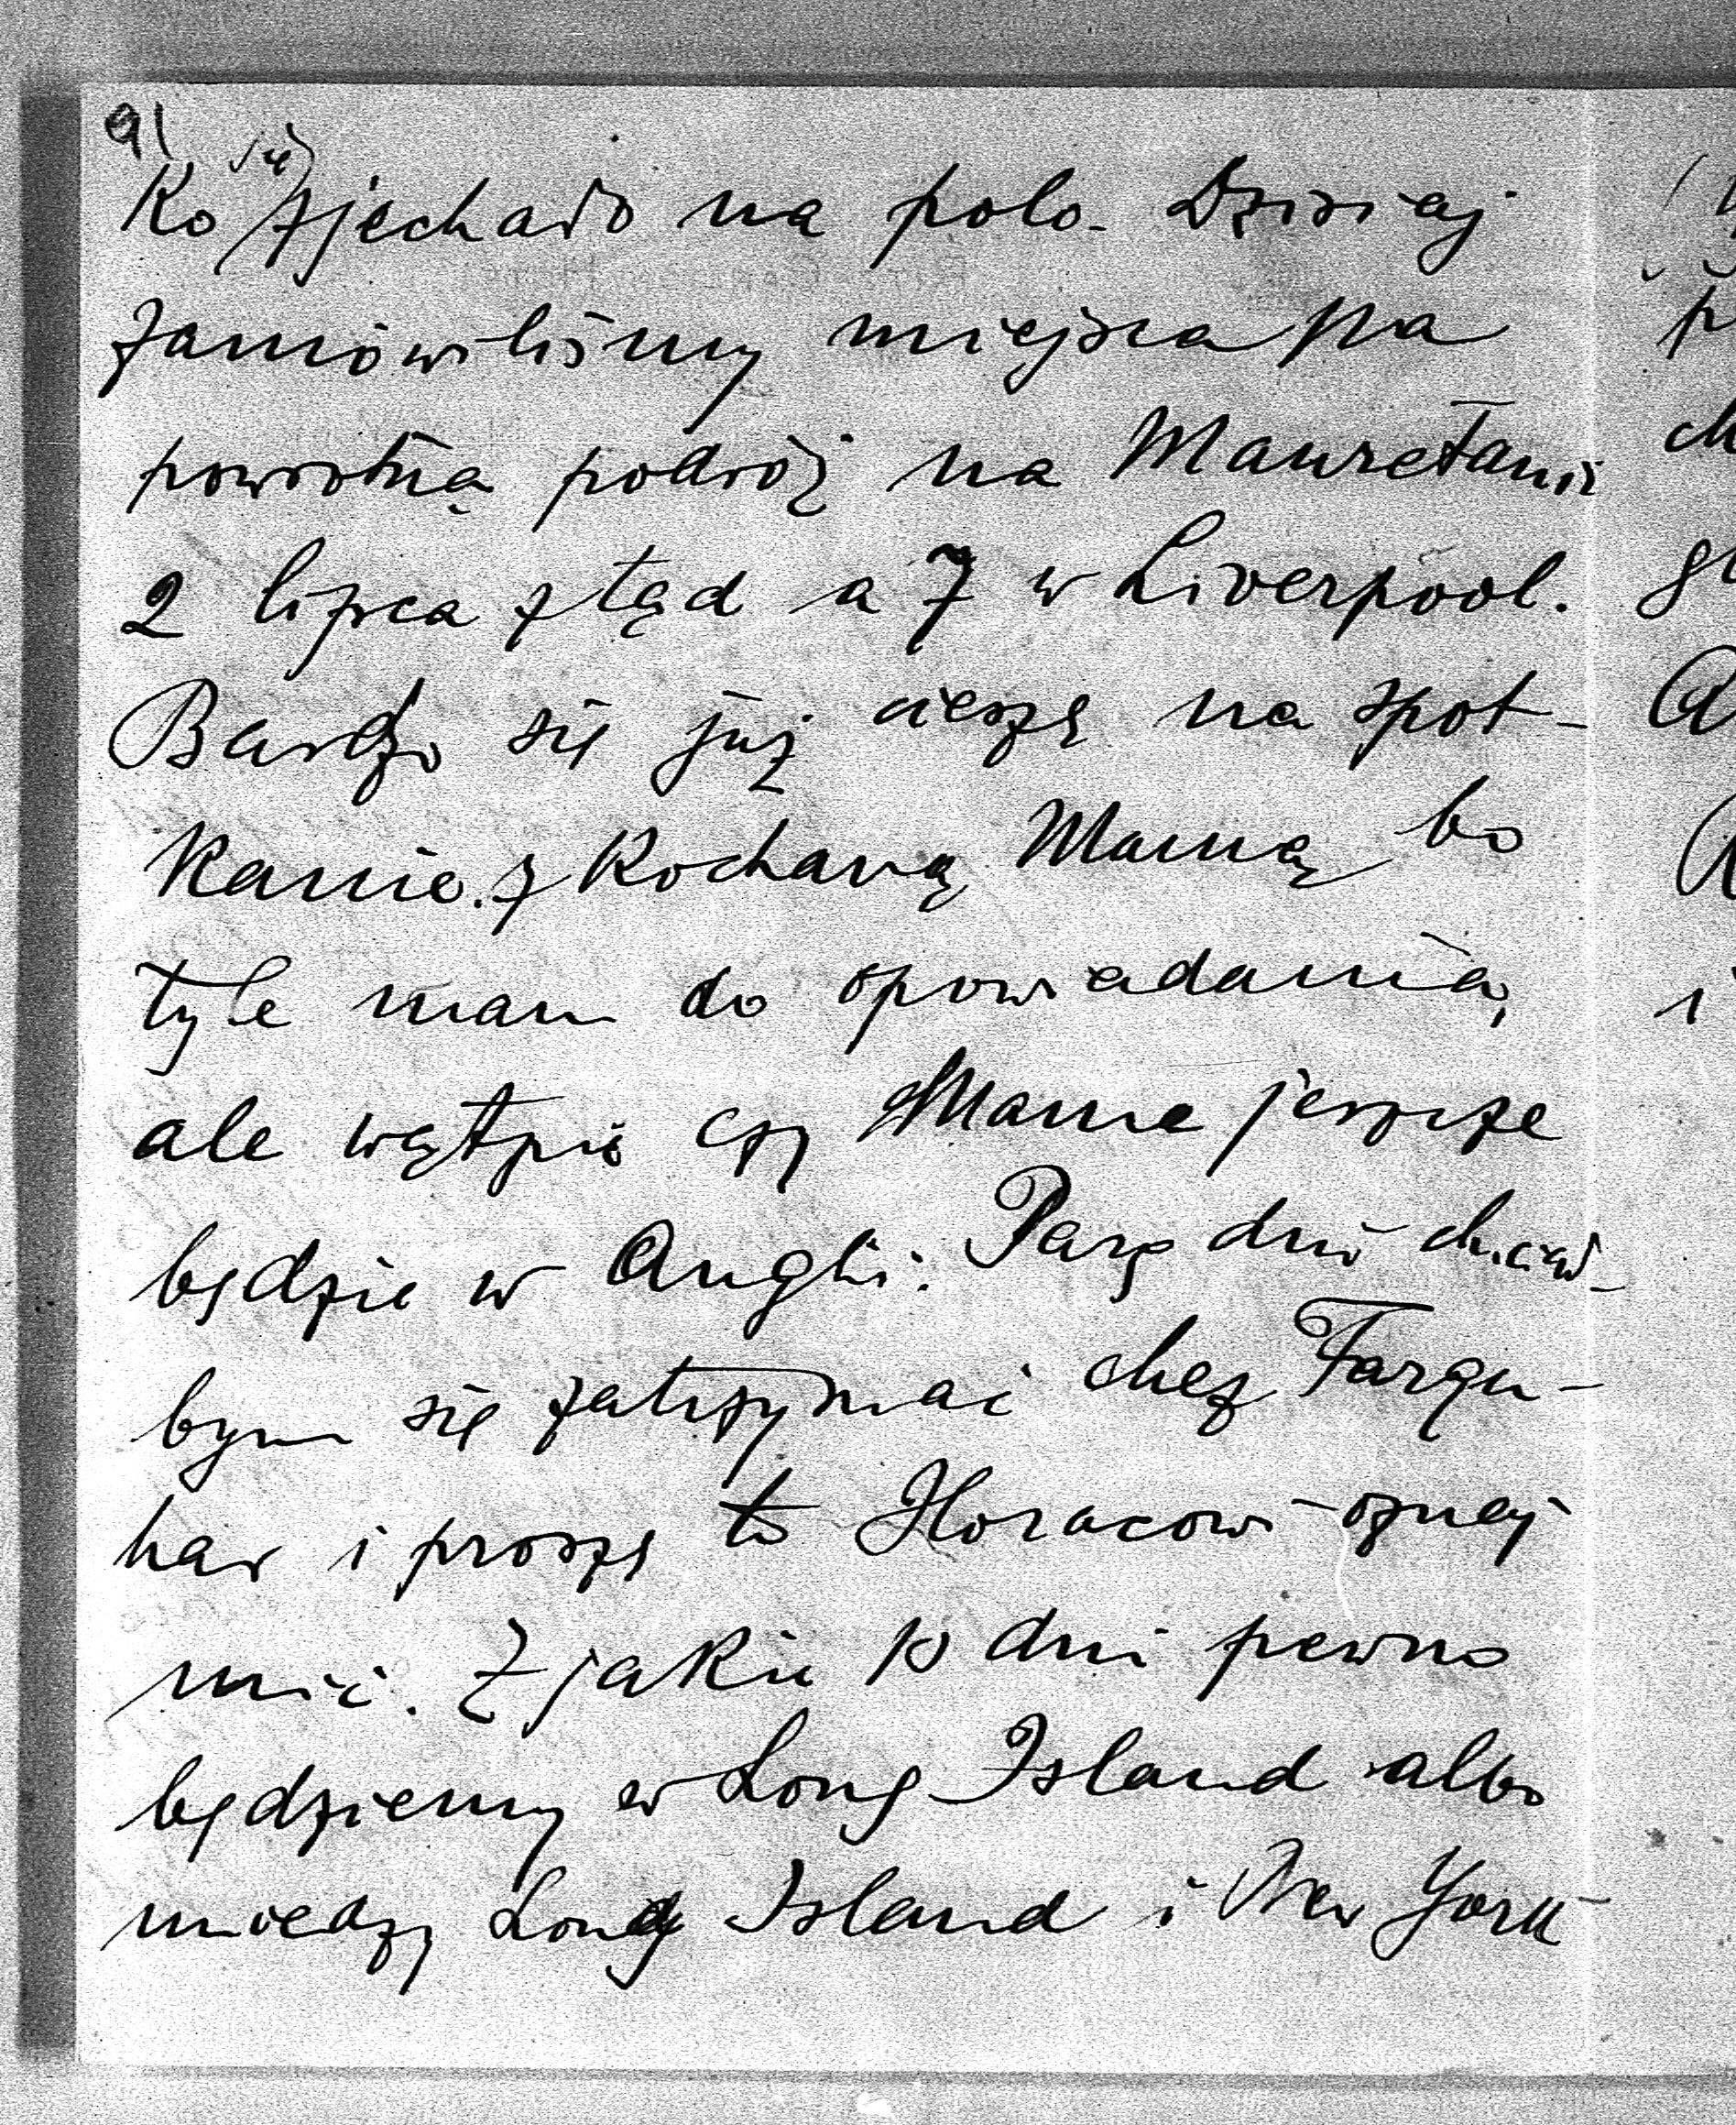 9)
ko się zjechało na polo. Dzisiaj
zamówiliśmy miejsca na
powrotną podróż na Mauretanii
2 lipca ztąd a 7 w Liverpool.
Bardzo się już cieszę na spot-
kanie z kochaną Mamą bo
tyle mam do opowiadania,
ale wątpię czy Mama jeszcze
będzie w Anglii. Parę dni chciał-
bym się zatrzymać chez Farqu-
har i proszę to Horacowi oznaj
mić. Z jakie 10 dni pewno
będziemy w Long Island albo
miedzy Long Island i New York